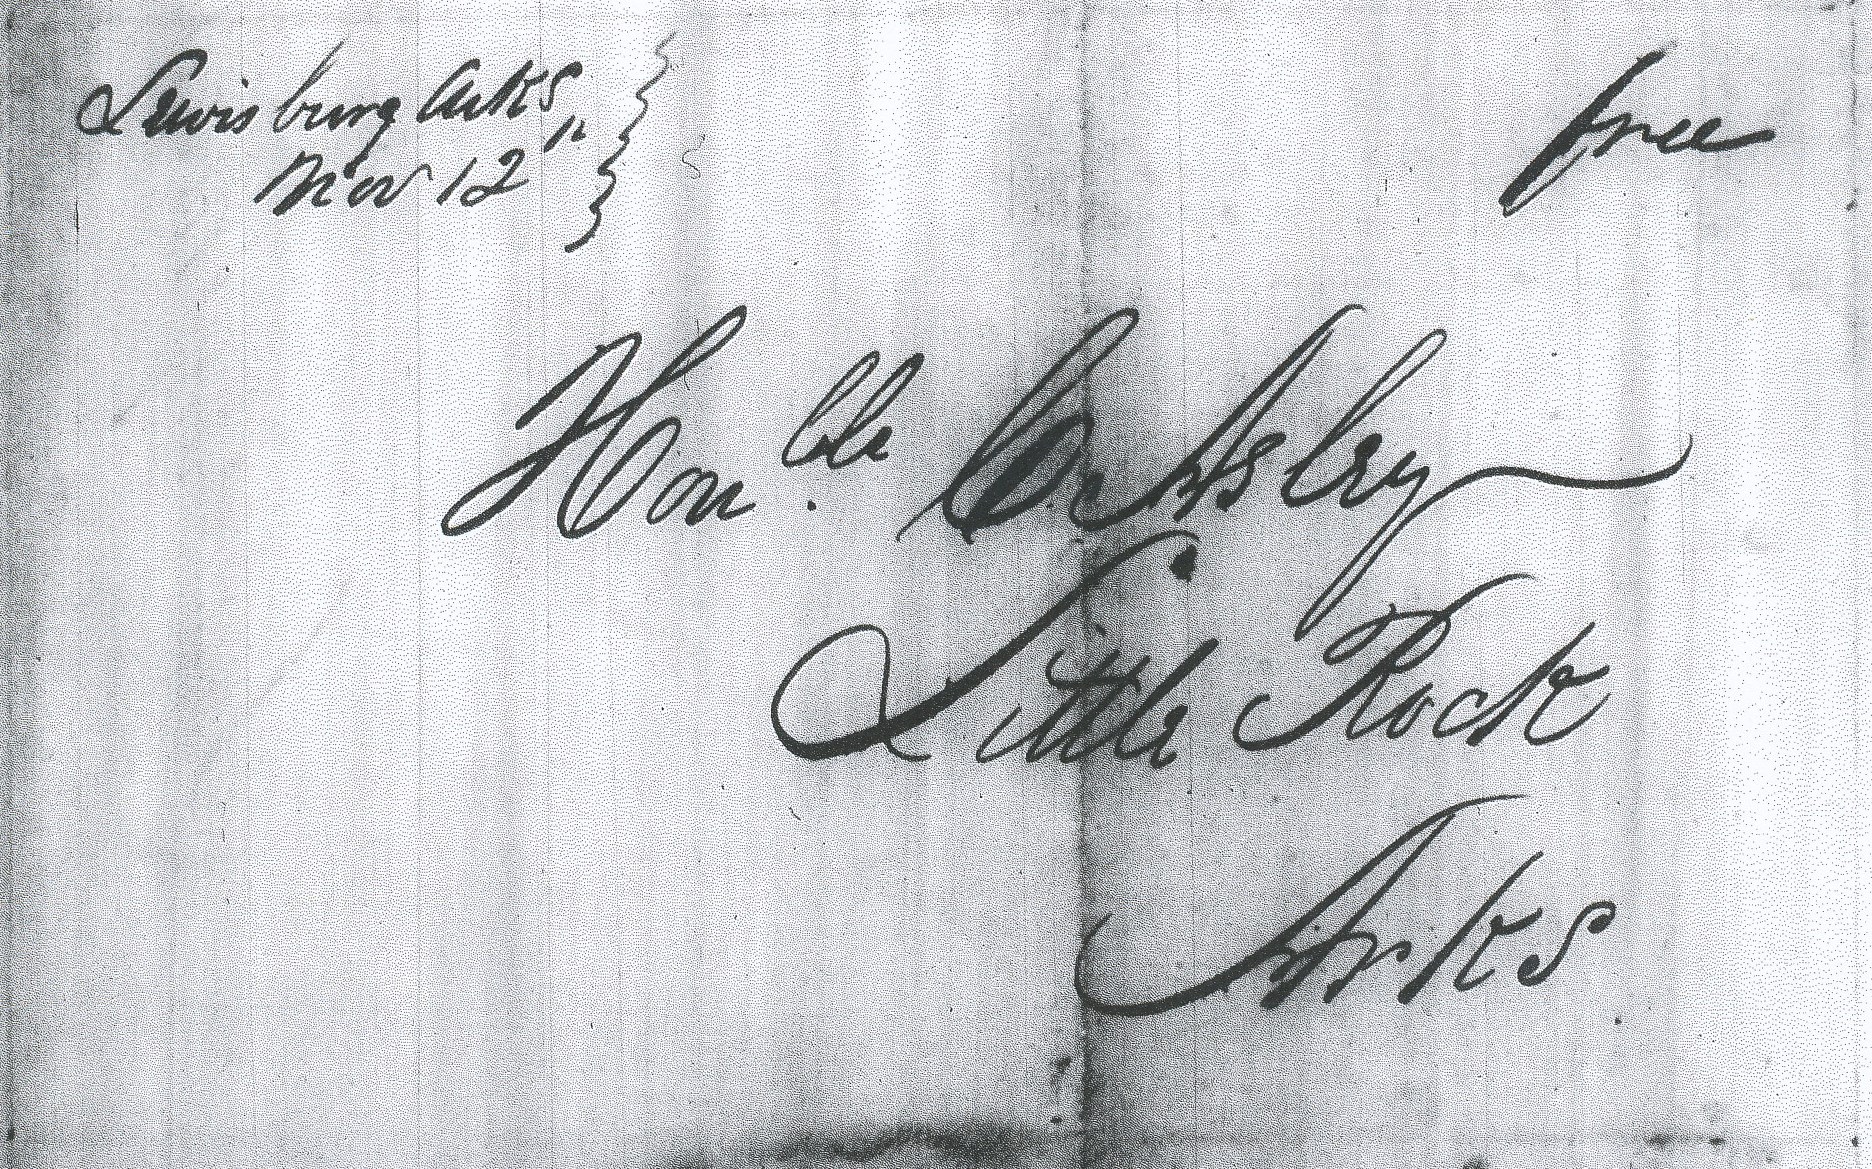 Lewisburg Arks
Nov 12"
free
Hon.ble C. Ashley
Little Rock
Arks